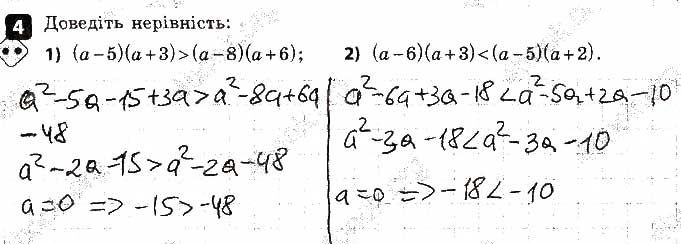 4 Доведіть нерівність:
1) (a−5)(a+3)>(a−8)(a+6); 2) (a−6)(a+3)<(a−5)(a+2).
a²−5a−15+3a>a²−8a+6a
−48
a²−2a−15>a²−2a−48
a=0 => −15>−48
a²−6a+3a−18<a²−5a+2a−10
a²−3a−18<a²−3a−10
a=0 => −18<−10